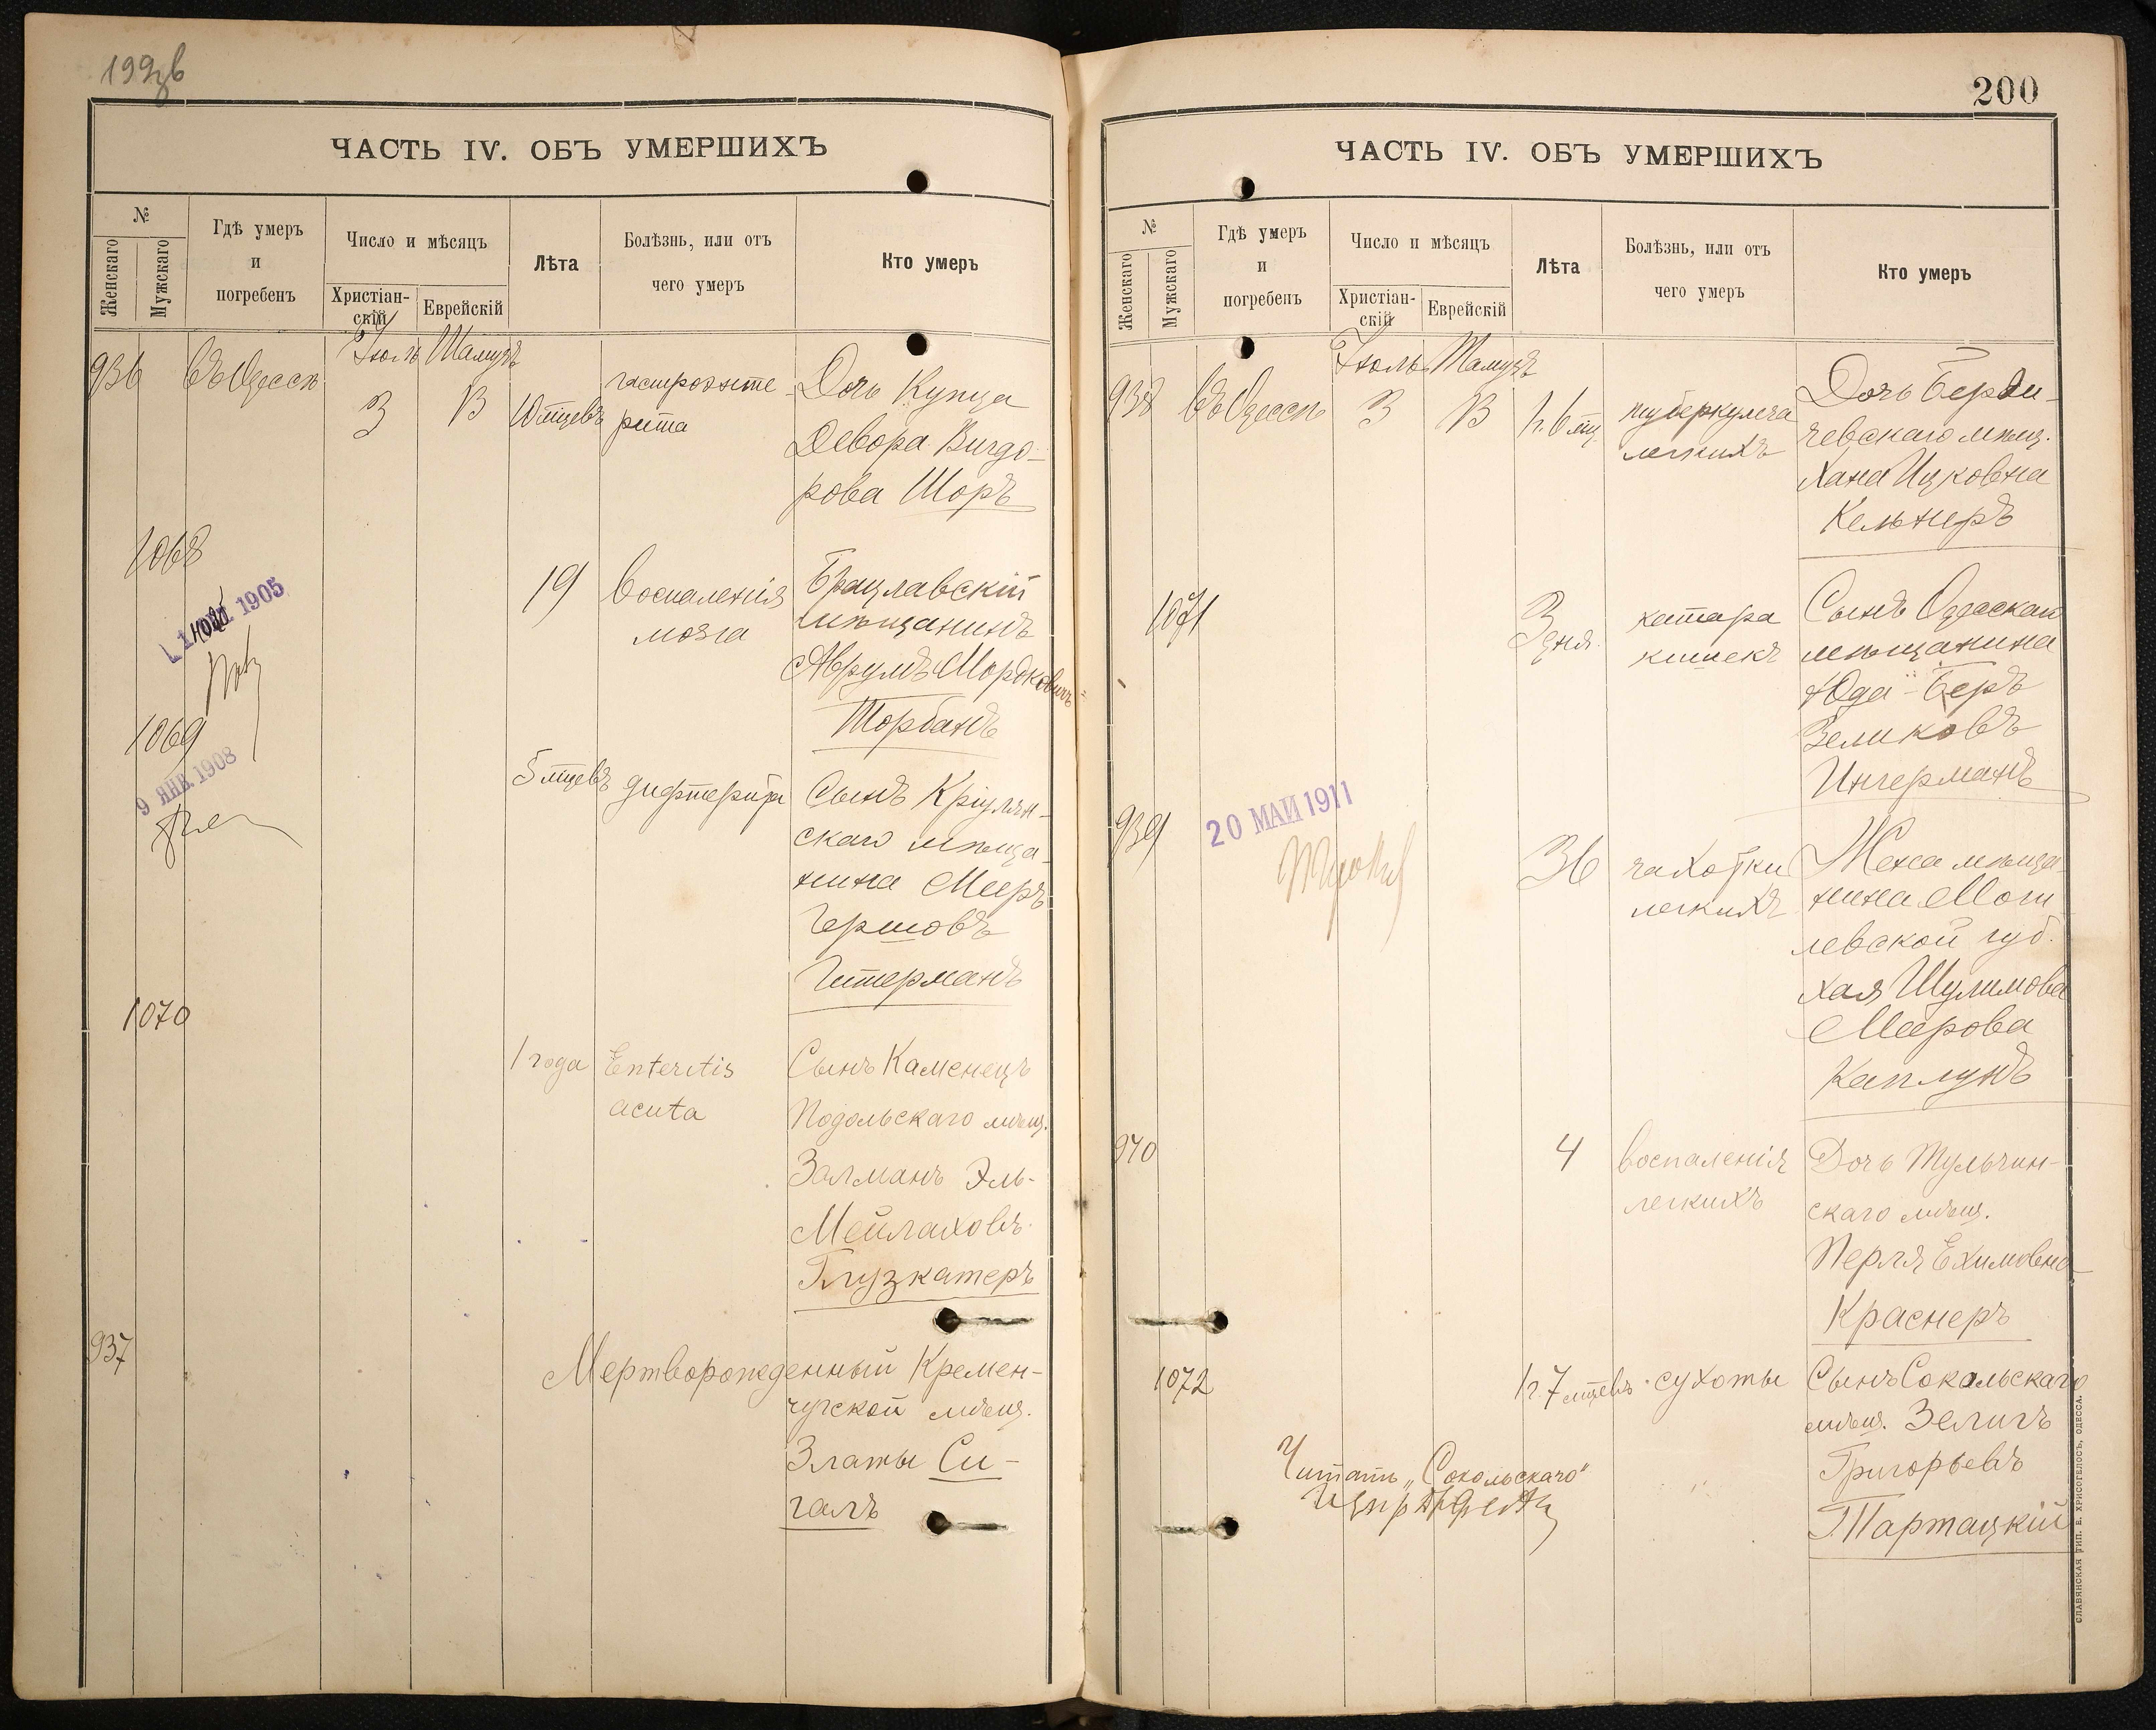 199об
ЧАСТЬ IV. ОБЪ УМЕРШИХЪ
№
Женскаго
Мужскаго
Гдѣ умеръ
и
погребенъ
Число и мѣсяцъ
Христіан-
скій
Еврейскій
Лѣта
Болѣзнь, или отъ
чего умеръ
Кто умеръ
Іюль Тамузъ
936 Въ Одессѣ 3 13 10 мцевъ
гастроэнте-
рита
Дочь Купца
Девора Вигдо-
рова Шоръ
1068
19
воспаленія
мозга
Брацлавскій
мѣщанинъ
Аврумъ Мордковичъ
Торбанъ
1905
1069
9 ЯНВ. 1908
5 мцевъ
дифтерита
Сынъ Кріулян-
скаго мѣща-
нина Мееръ
Гершовъ
Гитерманъ
1070
1 года
Enteritis
acuta
Сынъ Каменецъ
Подольскаго мѣщ.
Залманъ Эль-
Мейлаховъ
Глузкатеръ
937
Мертворожденный Кремен-
чугской мѣщ.
Златы Си-
галъ
200
ЧАСТЬ IV. ОБЪ УМЕРШИХЪ
№
Женскаго
Мужскаго
Гдѣ умеръ
и
погребенъ
Число и мѣсяцъ
Христіан-
скій
Еврейскій
Лѣта
Болѣзнь, или отъ
чего умеръ
Кто умеръ
Іюль Тамузъ
938 Въ Одессѣ 3 13 1 г. 6 мц
туберкулеза
легкихъ
Дочь Берди-
чевскаго мѣщ.
Хана Ицковна
Кельнеръ
1071
3 дня
катара
кишекъ
Сынъ Одесскаго
мѣщанина
Юда-Беръ
Зеликовъ
Ингерманъ
939
20 МАЙ 1911
36
чахотки
легкихъ
Жена мѣща-
нина Моги-
левской губ.
Хая Шулимова
Меерова
Каплунъ
940
4
воспаленія
легкихъ
Дочь Тульчин-
скаго мѣщ.
Перля Ехимовна
Краснеръ
1072
1 г. 7 мцевъ
сухоты
Сынъ Сокальскаго
мѣщ. Зелигъ
Григорьевъ
Тартацкій
Читать „Сокольскаго"
СЛАВЯНСКАЯ ТИП. Е. ХРИСОГЕЛОСЪ, ОДЕССА.